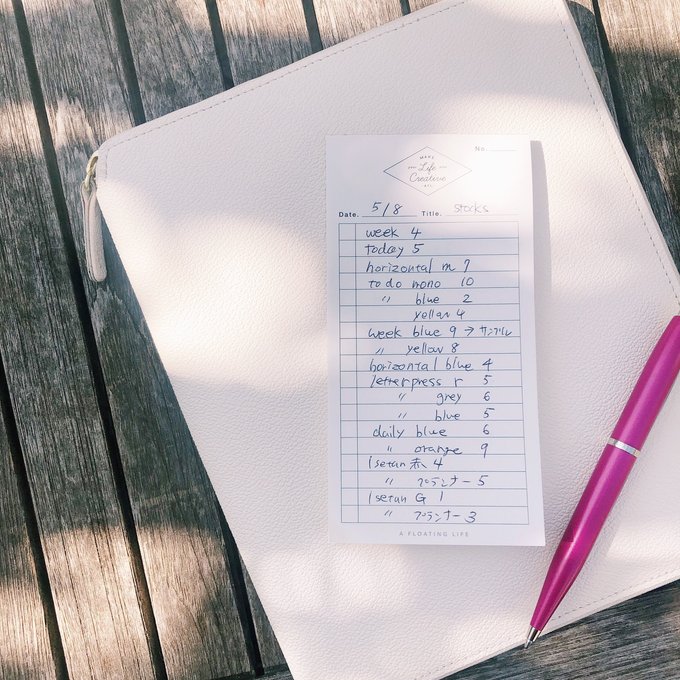 No.
MAKE
Life
Creative
&CO.
Date. 5/8 Title. stocks
week 4
today 5
horizontal m 7
to do mono 10
〃 blue 2
yellow 4
week blue 9 → サンプル
〃 yellow 8
horizontal blue 4
letterpress r 5
〃 grey 6
〃 blue 5
daily blue 6
〃 orange 9
Isetan 赤 4
〃 プランナー 5
Isetan G 1
〃 プランナー 3
A FLOATING LIFE